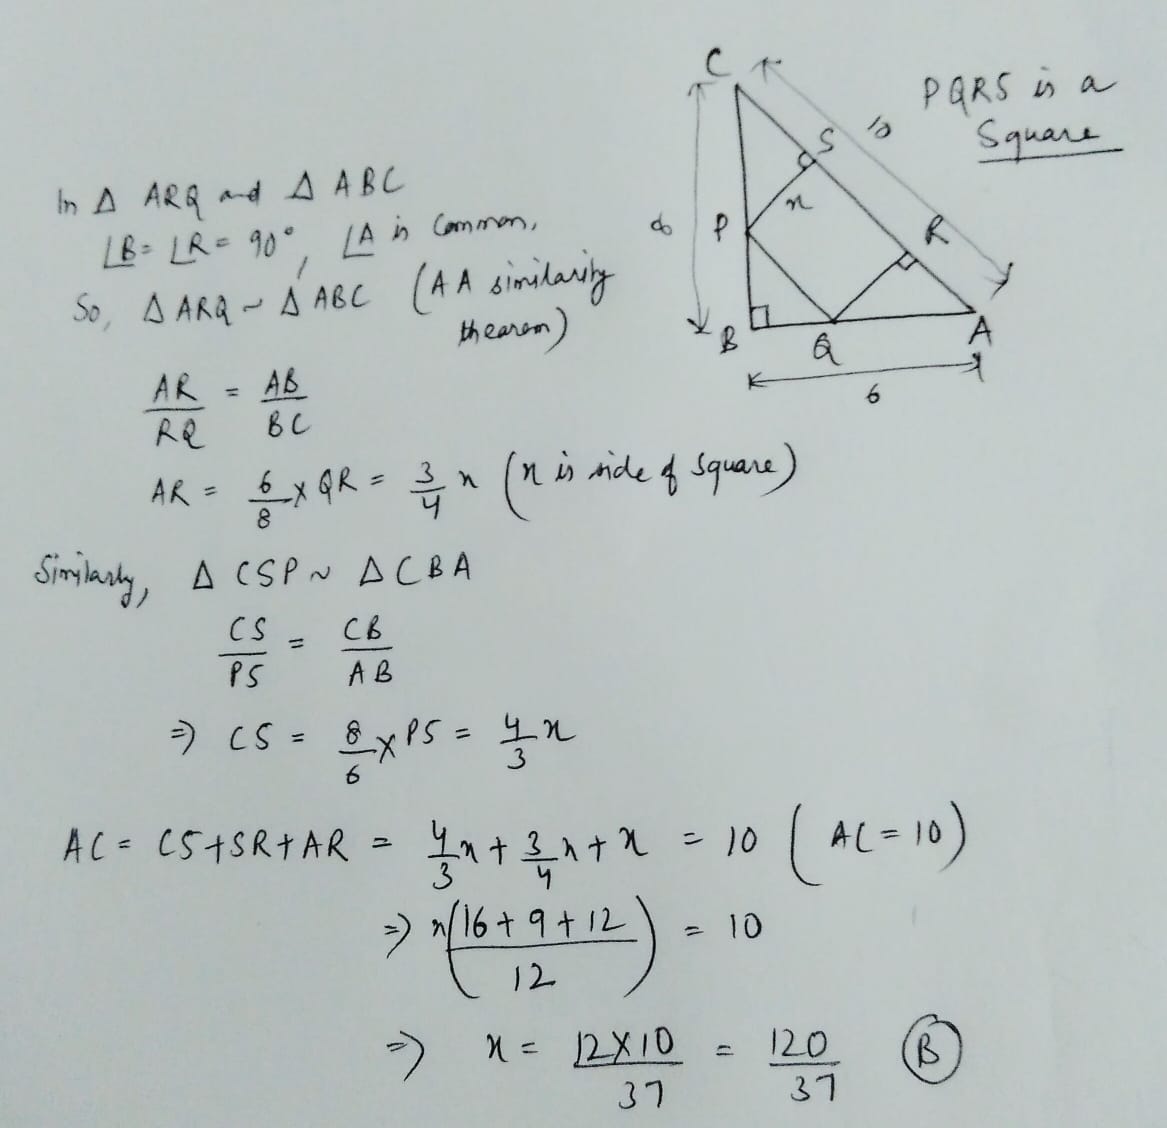 C
PQRS is a
Square
S
10
x
8
P
R
B
Q
A
6
In Δ ARQ and Δ ABC
∠B = ∠R = 90°, ∠A is Common,
So, Δ ARQ ~ Δ ABC (AA similarity
thearem)
AR/RQ = AB/BC
AR = 6/8 × QR = 3/4 x (x is side of square)
Similarly, Δ CSP ~ Δ CBA
CS/PS = CB/AB
⇒ CS = 8/6 × PS = 4/3 x
AC = CS + SR + AR = 4/3 x + 3/4 x + x = 10 (AC = 10)
⇒ x(16 + 9 + 12 / 12) = 10
⇒ x = 12×10/37 = 120/37 (B)